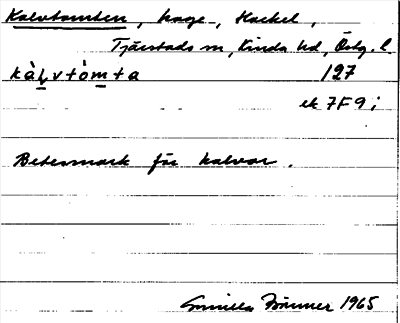 Kalvtomten, hage, Hackel,
Tjärstads sn, Kinda hd, Östg. l.
kàḷvtòm̲ta 127
ek 7F9i
Betesmark för kalvar.
Gunilla 1965